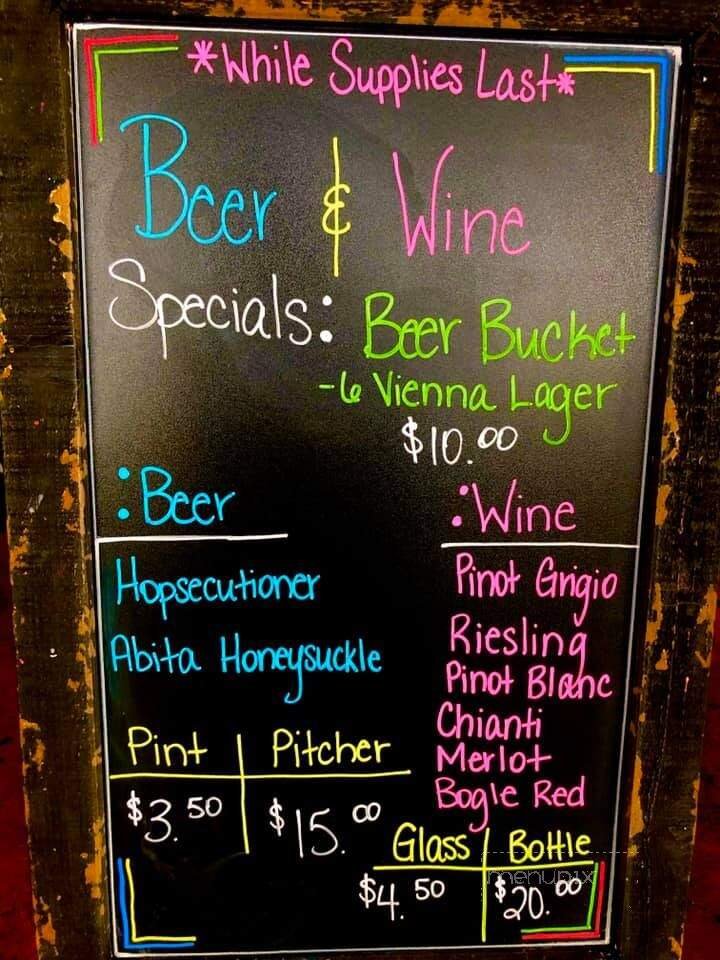 *While Supplies Last*
Beer & Wine
Specials: Beer Bucket
-6 Vienna Lager
$10.00
:Beer
Hopsecutioner
Abita Honeysuckle
Pint | Pitcher
$3.50 | $15.00
:Wine
Pinot Grigio
Riesling
Pinot Blanc
Chianti
Merlot
Bogle Red
Glass | Bottle
$4.50 | $20.00
menupix